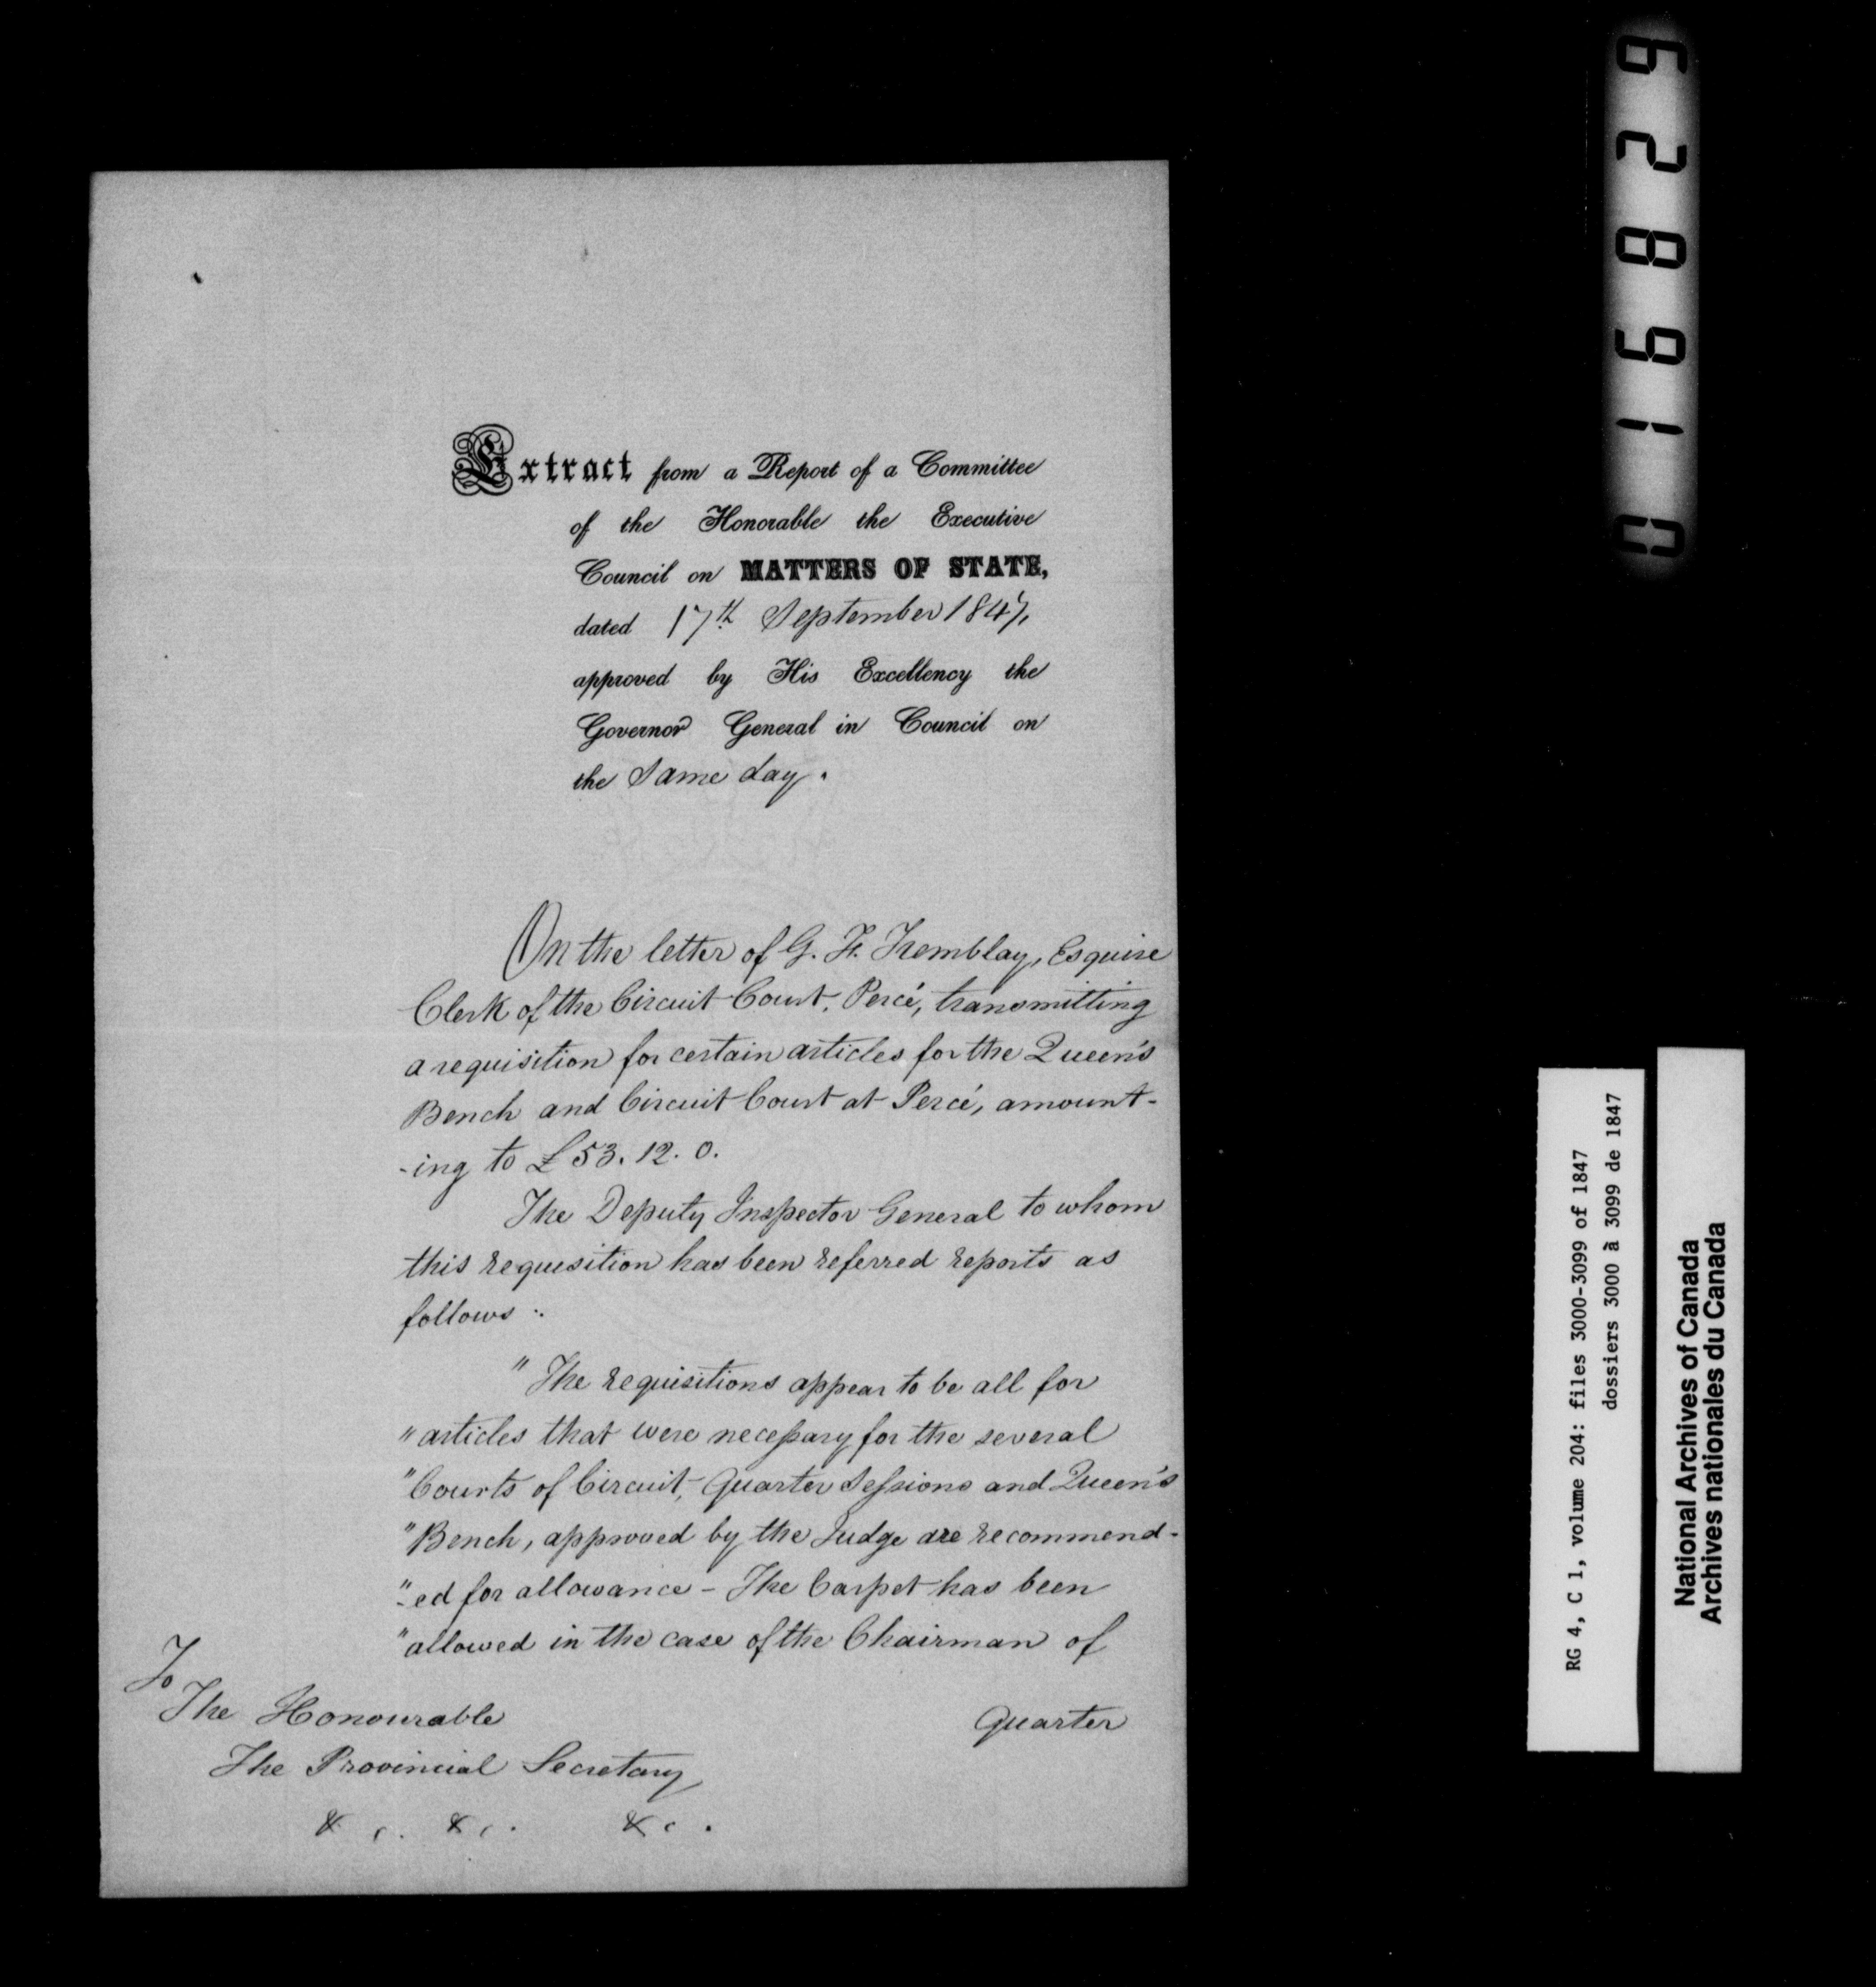 Extract from a Report of a Committee
of the Honorable the Executive
Council on MATTERS OF STATE,
dated 17th September 1847,
approved by His Excellency the
Governor General in Council on
the Same day.
On the letter of G. F. Tremblay, Esquire
Clerk of the Circuit Court, Percé, transmitting
a requisition for certain articles for the Queen's
Bench and Circuit Court at Percé, amount-
-ing to £53. 12. 0.
The Deputy Inspector General to whom
this requisition has been referred reports as
follows :.
" The requisitions appear to be all for
" articles that were necessary for the several
" Courts of Circuit, Quarter Sessions and Queen's
" Bench, approved by the Judge are recommend-
"-ed for allowance – The Carpet has been
" allowed in the case of the Chairman of
Quarter
To
The Honourable
The Provincial Secretary
&c. &c. &c.
016829
RG 4, C 1, volume 204: files 3000-3099 of 1847
dossiers 3000 à 3099 de 1847
National Archives of Canada
Archives nationales du Canada